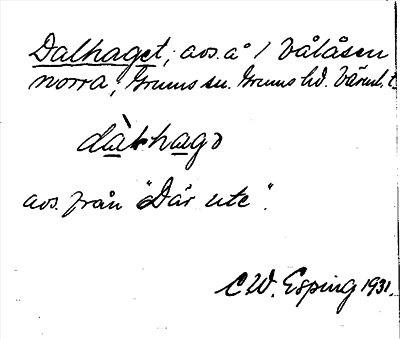 Dalhaget, avs. å / Vålåsen
norra, Grums sn. Grums hd. Värml. l.
dàl·hagə
avs. från "Där ute".
C.W. Esping 1931.